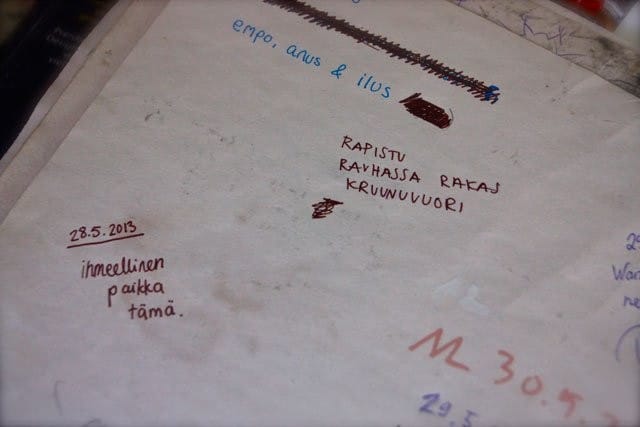 empo, anus & ilus
RAPISTU
RAUHASSA RAKAS
KRUUNUVUORI
28.5.2013
ihmeellinen
paikka
tämä.
30.5.
29.5